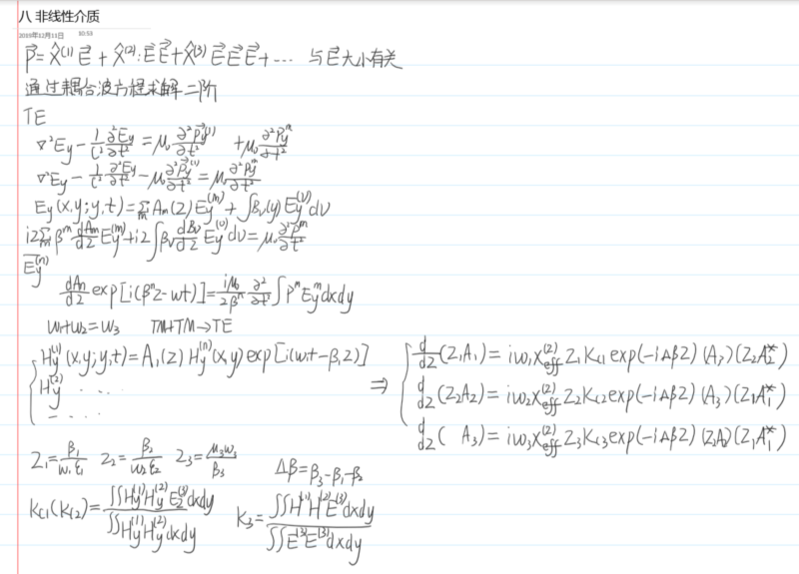 八 非线性介质
2019年12月11日 10:53
P⃗ = X̂⁽¹⁾ E⃗ + X̂⁽²⁾: E⃗ E⃗ + X̂⁽³⁾ E⃗ E⃗ E⃗ + ... 与 E⃗ 大小有关
通过耦合波方程求解二阶
TE
∇²Ey - 1/c² ∂²Ey/∂t² = μ₀ ∂²Py⁽¹⁾/∂t² + μ₀ ∂²Pyⁿ/∂t²
∇²Ey - 1/c² ∂²Ey/∂t² - μ₀ ∂²Py⁽¹⁾/∂t² = μ₀ ∂²Pyⁿ/∂t²
Ey(x,y;y,t) = Σm Am(z) Ey⁽ᵐ⁾ + ∫Bν(y) Ey⁽ᵛ⁾ dν
i2Σm βᵐ dAm/dz Ey⁽ᵐ⁾ + i2∫βν dBν/dz Ey⁽ᵛ⁾ dν = μ₀ ∂²Pⁿ/∂t²
Ey⁽ⁿ⁾
dAn/dz exp[i(βⁿz - wt)] = iμ₀/2βⁿ ∂²/∂t² ∫Pⁿ Eyᵐ dxdy
w₁+w₂=w₃ TM+TM→TE
Hy⁽¹⁾(x,y;y,t) = A₁(z) Hy⁽ⁿ⁾(x,y) exp[i(w₁t-β₁z)]
Hy⁽²⁾ ...
....
⇒ d/dz (Z₁A₁) = iω₁X⁽²⁾eff Z₁K₍₁ exp(-iΔβz) (A₃)(Z₂A₂*)
d/dz (Z₂A₂) = iω₂X⁽²⁾eff Z₂K₍₂ exp(-iΔβz) (A₃)(Z₁A₁*)
d/dz ( A₃) = iω₃X⁽²⁾eff Z₃K₍₃ exp(-iΔβz) (Z₂A)(Z₁A₁*)
Z₁ = β₁/w₁ε₁ Z₂ = β₂/w₂ε₂ Z₃ = μ₃w₃/β₃ Δβ = β₃-β₁-β₂
K₍₁(K₍₂) = ∬Hy⁽¹⁾Hy⁽²⁾E₂⁽³⁾dxdy / ∬Hy⁽¹⁾Hy⁽²⁾dxdy K₃ = ∬H⁽¹⁾H⁽²⁾E⁽³⁾dxdy / ∬E⁽³⁾E⁽³⁾dxdy